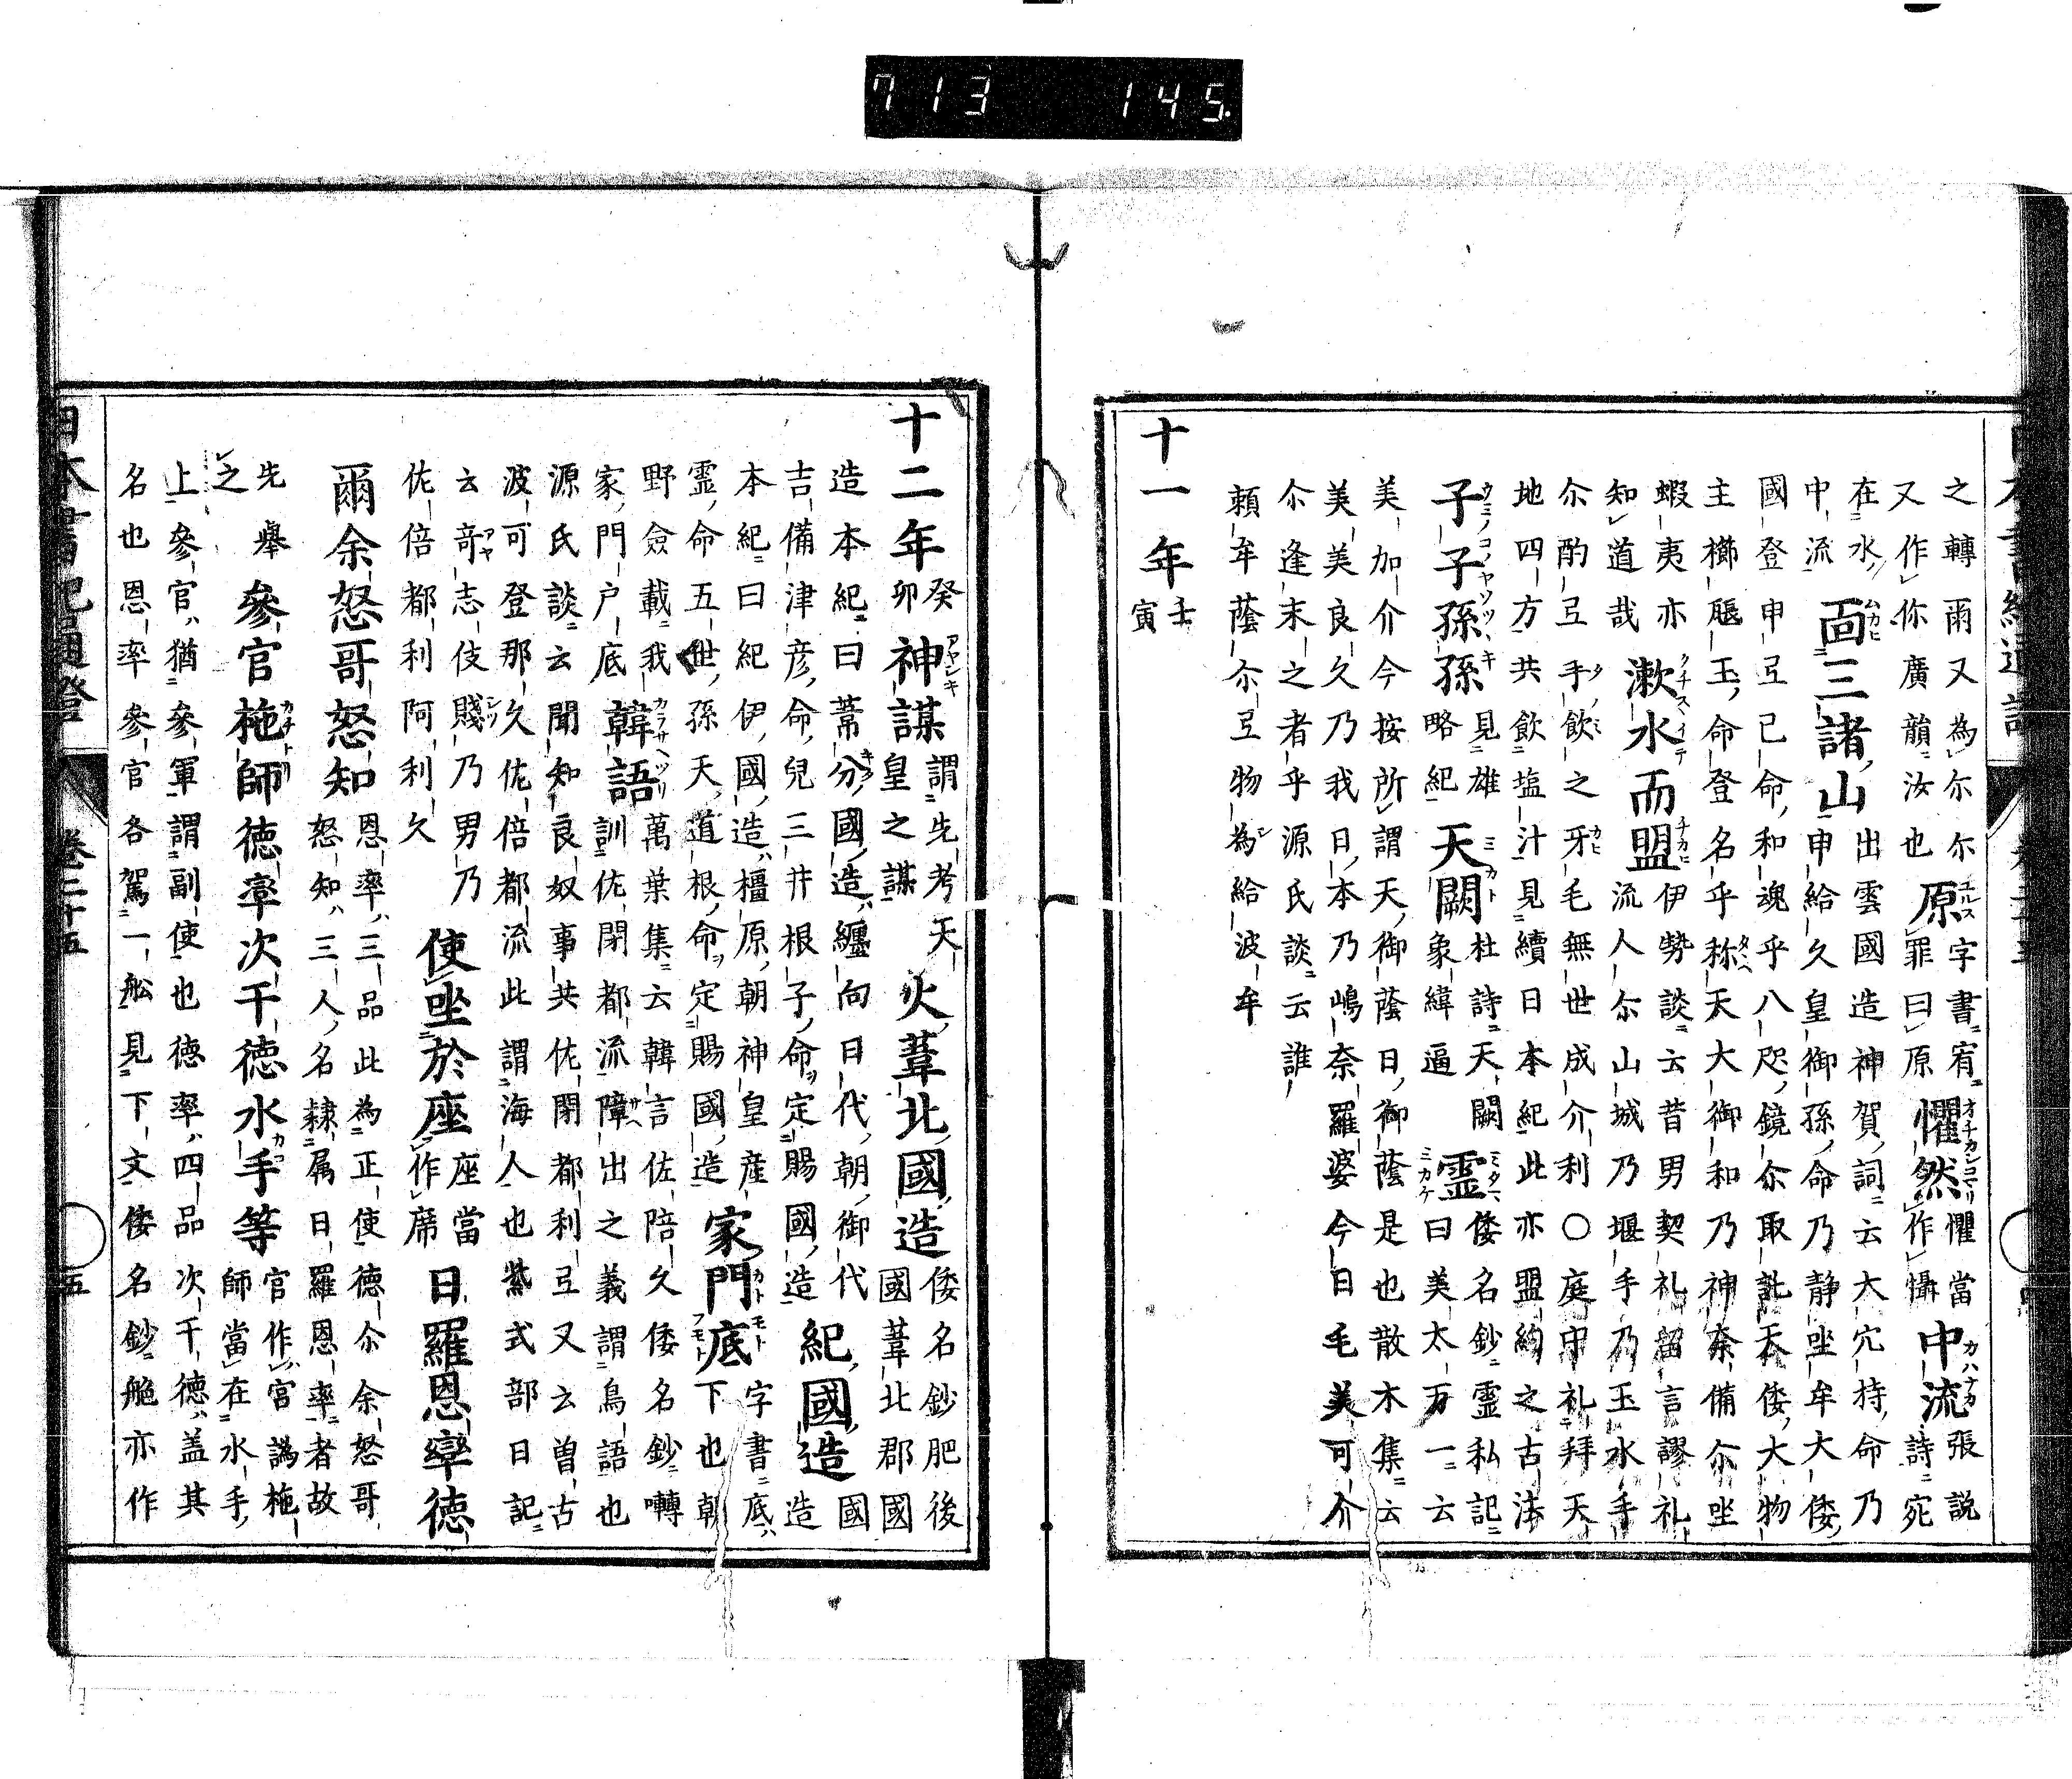 713 145.
之轉雨又為尓尓
又作你廣韻汝也
原字書宥
罪曰原
懼然懼當
作懾
中流張説
詩宛
在水
中流
面三諸山出雲國造神賀詞云大穴持命乃
申給久皇御孫命乃静坐牟大倭
國登申弖己命和魂乎八咫鏡尓取託天倭大物
主櫛𤭖玉命登名乎称天大御和乃神奈備尓坐
蝦夷亦
知道哉
漱水而盟
伊勢談云昔男契礼留言謬礼
流人尓山城乃堰手乃玉水手
尓酌弖手飲之牙毛無世成介利〇庭中礼拜天
地四方共飲塩汁見續日本紀此亦盟約之古法
子子孫孫見雄
略紀
天闕杜詩天闕
象緯逼
霊倭名鈔霊私記
曰美太万一云
美加介今按所謂天御蔭日御蔭是也散木集云
美美良久乃我日本乃嶋奈羅婆今日毛美可介
尓逢末之者乎源氏談云誰
頼牟蔭尓弖物為給波牟
十一年壬
寅
十二年癸
卯
神謀謂先考天
皇之謀
火葦北國造倭名鈔肥後
國葦北郡國
造本紀曰葦分國造纏向日代朝御代
吉備津彦命兒三井根子命定賜國造
紀國造國
造
本紀曰紀伊國造橿原朝神皇産
霊命五世孫天道根命定賜國造
家門底字書底
下也朝
野僉載我
家門戸底
韓語萬葉集云韓言佐陪久倭名鈔囀
訓佐閇都流障出之義謂鳥語也
源氏談云聞知良奴事共佐閇都利弖又云曽古
波可登那久佐倍都流此謂海人也紫式部日記
云奇志伎賤乃男乃
佐倍都利阿利久
使坐於座座當
作席
日羅恩率德
爾余怒哥怒知恩率三品此為正使德尓余怒哥
怒知三人名隷属日羅恩率者故
先舉
之
參官柂師德率次干德水手等官作宮譌柂
師當在水手
上參官猶參軍謂副使也德率四品次干德盖其
名也恩率參官各駕一舩見下文倭名鈔䑨亦作
日本書紀通證 卷二十五 五